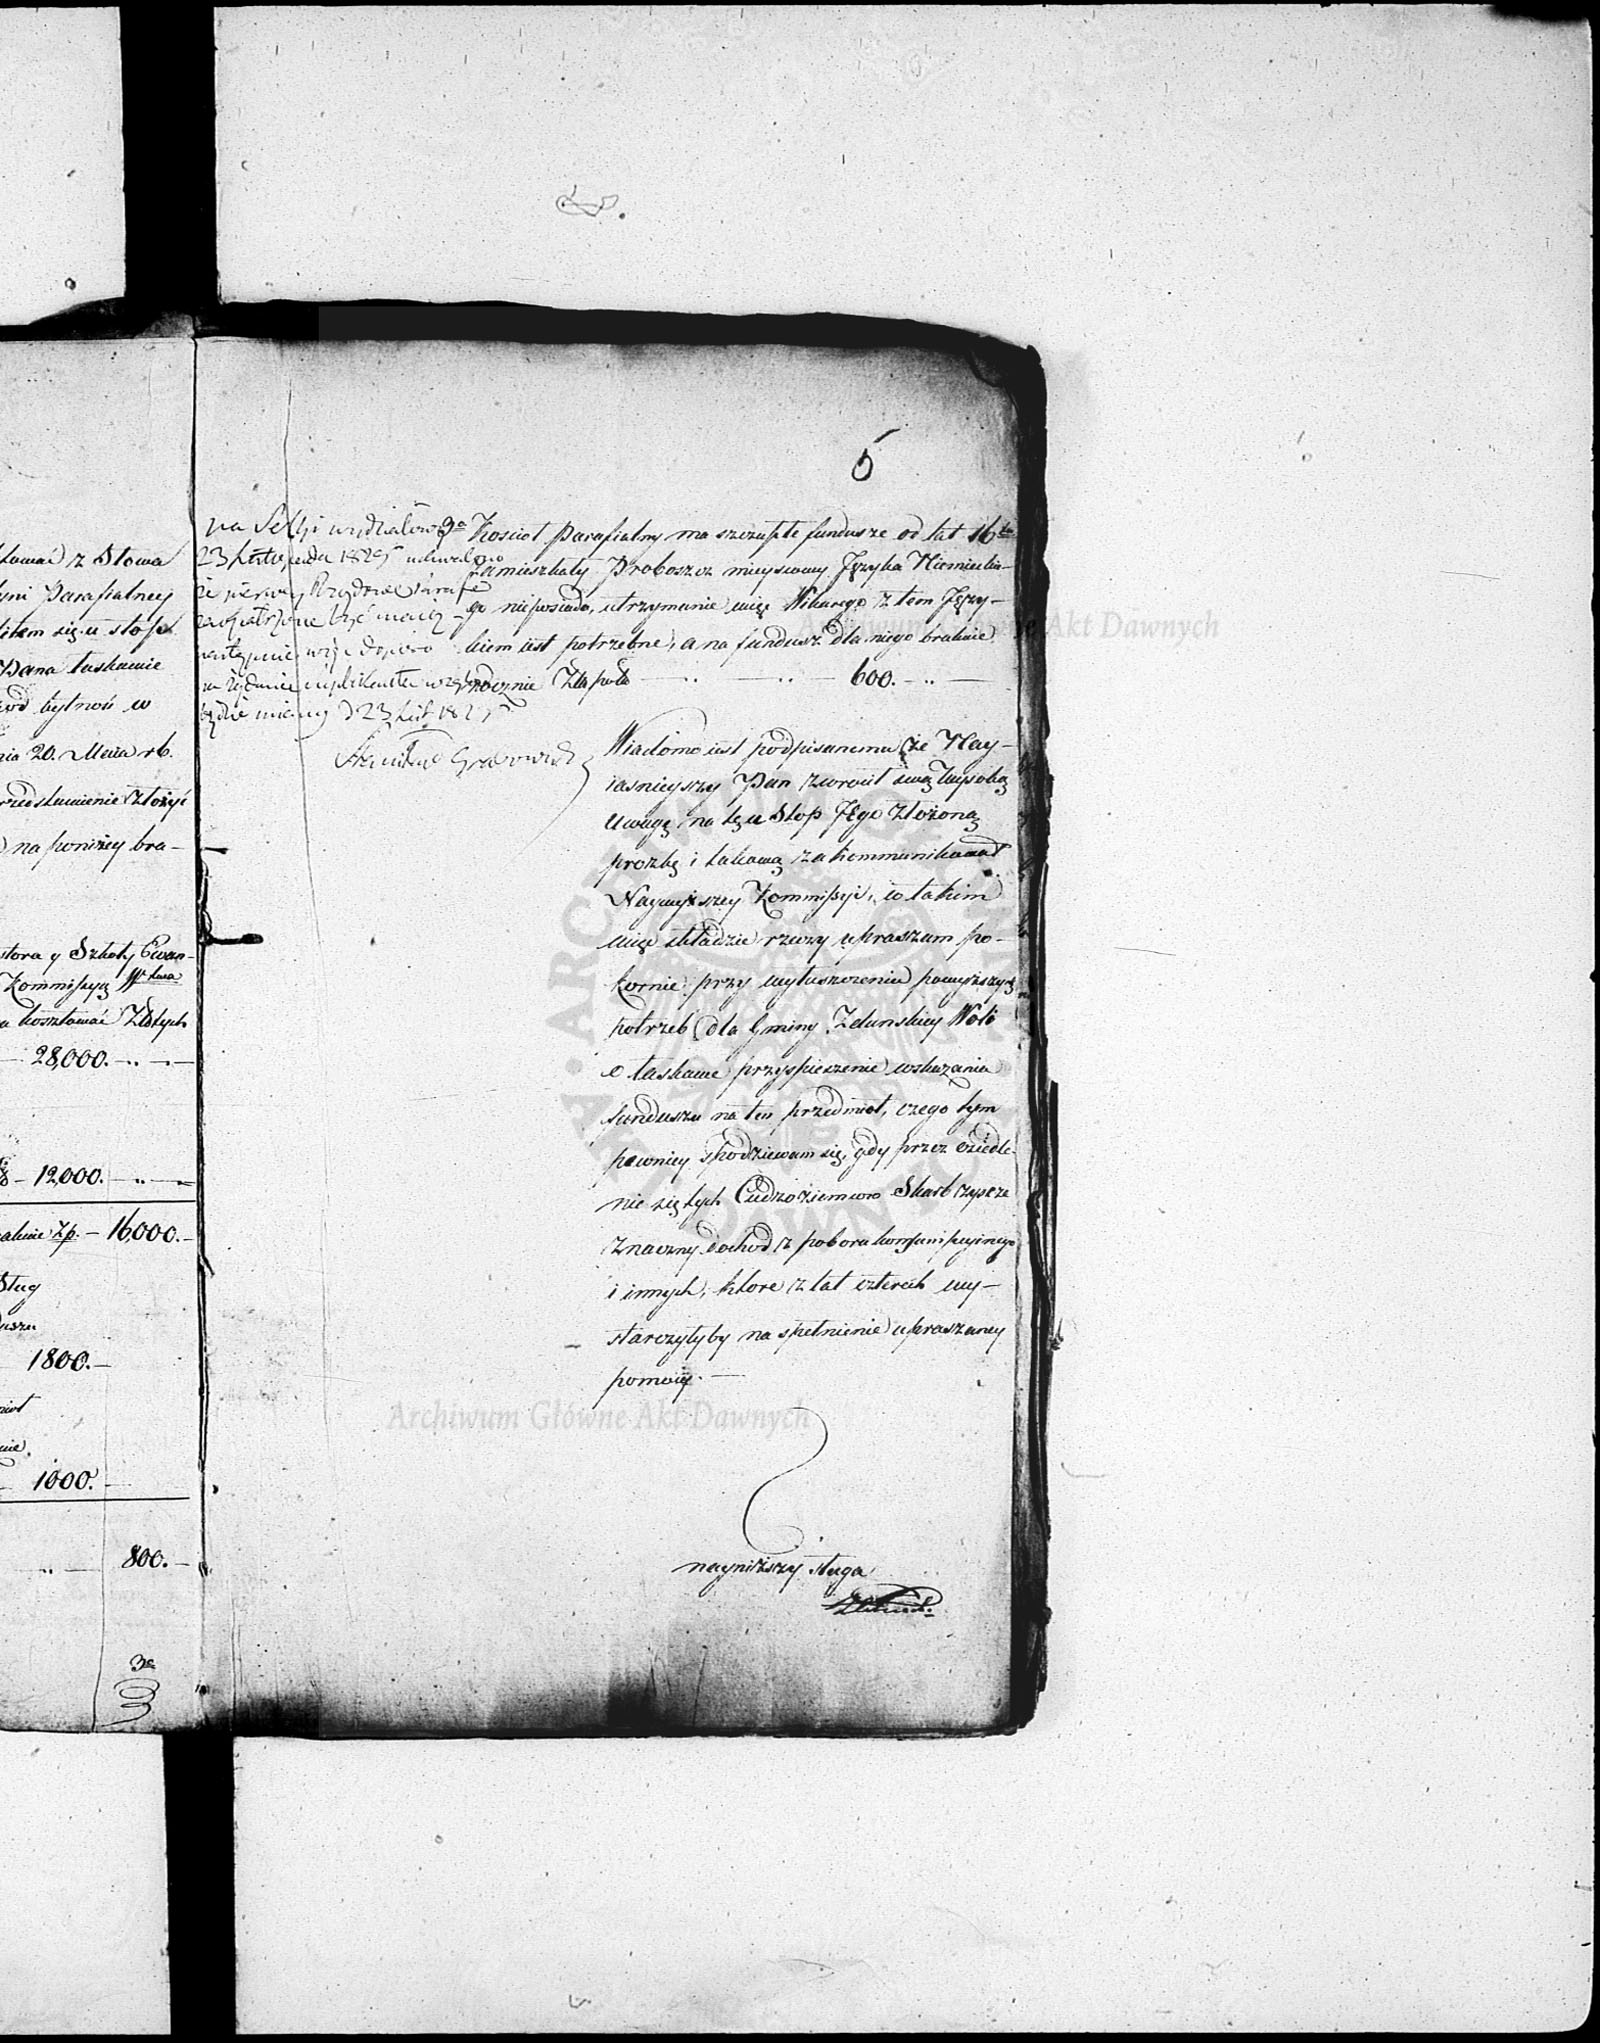 5
łować z Słowa
yni Parafialney
liłem się u stóp
Pana łaskawie
bytność w
nia 20. Maia rb.
rzedstawienie złożyć
na poniżey bra-
stora y Szkoły Ewan-
Kommissyą Wdzka
kosztować Złotych
28,000.
12,000.
zp. 16,000.
Sług
1800.
1000.
800.
3e
na Sessyi wydziałowey
23 Listopada 1825 uchwalono
że pierwey Rządowe Parafie
zaopatrzone być maią
następnie więc dopiero
na żądanie wzgląd
będzie miany d 23 List 1825
Stanisław Grabowski
Kościoł Parafialny ma szczupłe fundusze od lat 16tu
zamieszkały Proboszcz mieyscowy Języka Niemieckie-
go nieposiada, utrzymanie więc Wikarego z tem Języ-
kiem iest potrzebne, a na fundusz dla niego braknie
rocznie Złt pols 600.
Wiadomo iest podpisanemu że Nay-
iasnieyszy Pan zwrócił swą wysoką
uwagę na tę u Stóp Jego złożoną
prozbę i takową zakommunikował
Naywyższey Kommissyi, w takim
więc składzie rzeczy upraszam po-
kornie przy wyłuszczeniu powyższych
potrzeb dla Gminy Zduńskiey Woli
o łaskawe przyspieszenie wskazania
funduszu na ten przedmiot, czego tym
pewniey spodziewam się, gdy przez osiedle-
nie się tych Cudzoziemców Skarb zyszcze
znaczny dochod z poboru konsumpcyinego
i innych, które z lat czterech wy-
starczyłyby na spełnienie upraszaney
pomocy.
nayniższy sługa
Archiwum Główne Akt Dawnych
Archiwum Główne Akt Dawnych